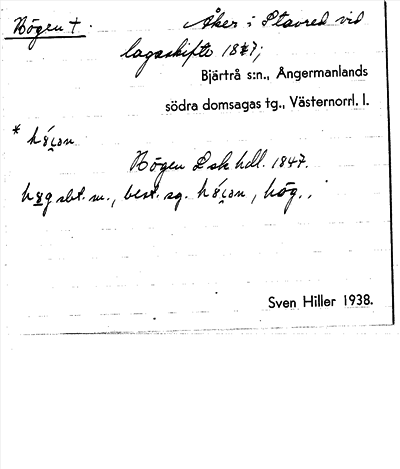 Högen †. Åker i Stavred vid
lagaskifte 1847;
Bjärtrå s:n., Ångermanlands
södra domsagas tg., Västernorrl. l.
* hɤ́ɩ̯ən
Högen L sk hdl. 1847.
hɤg sbt. m., best. sg. hɤ́ɩ̯ən, hög.
Sven Hiller 1938.